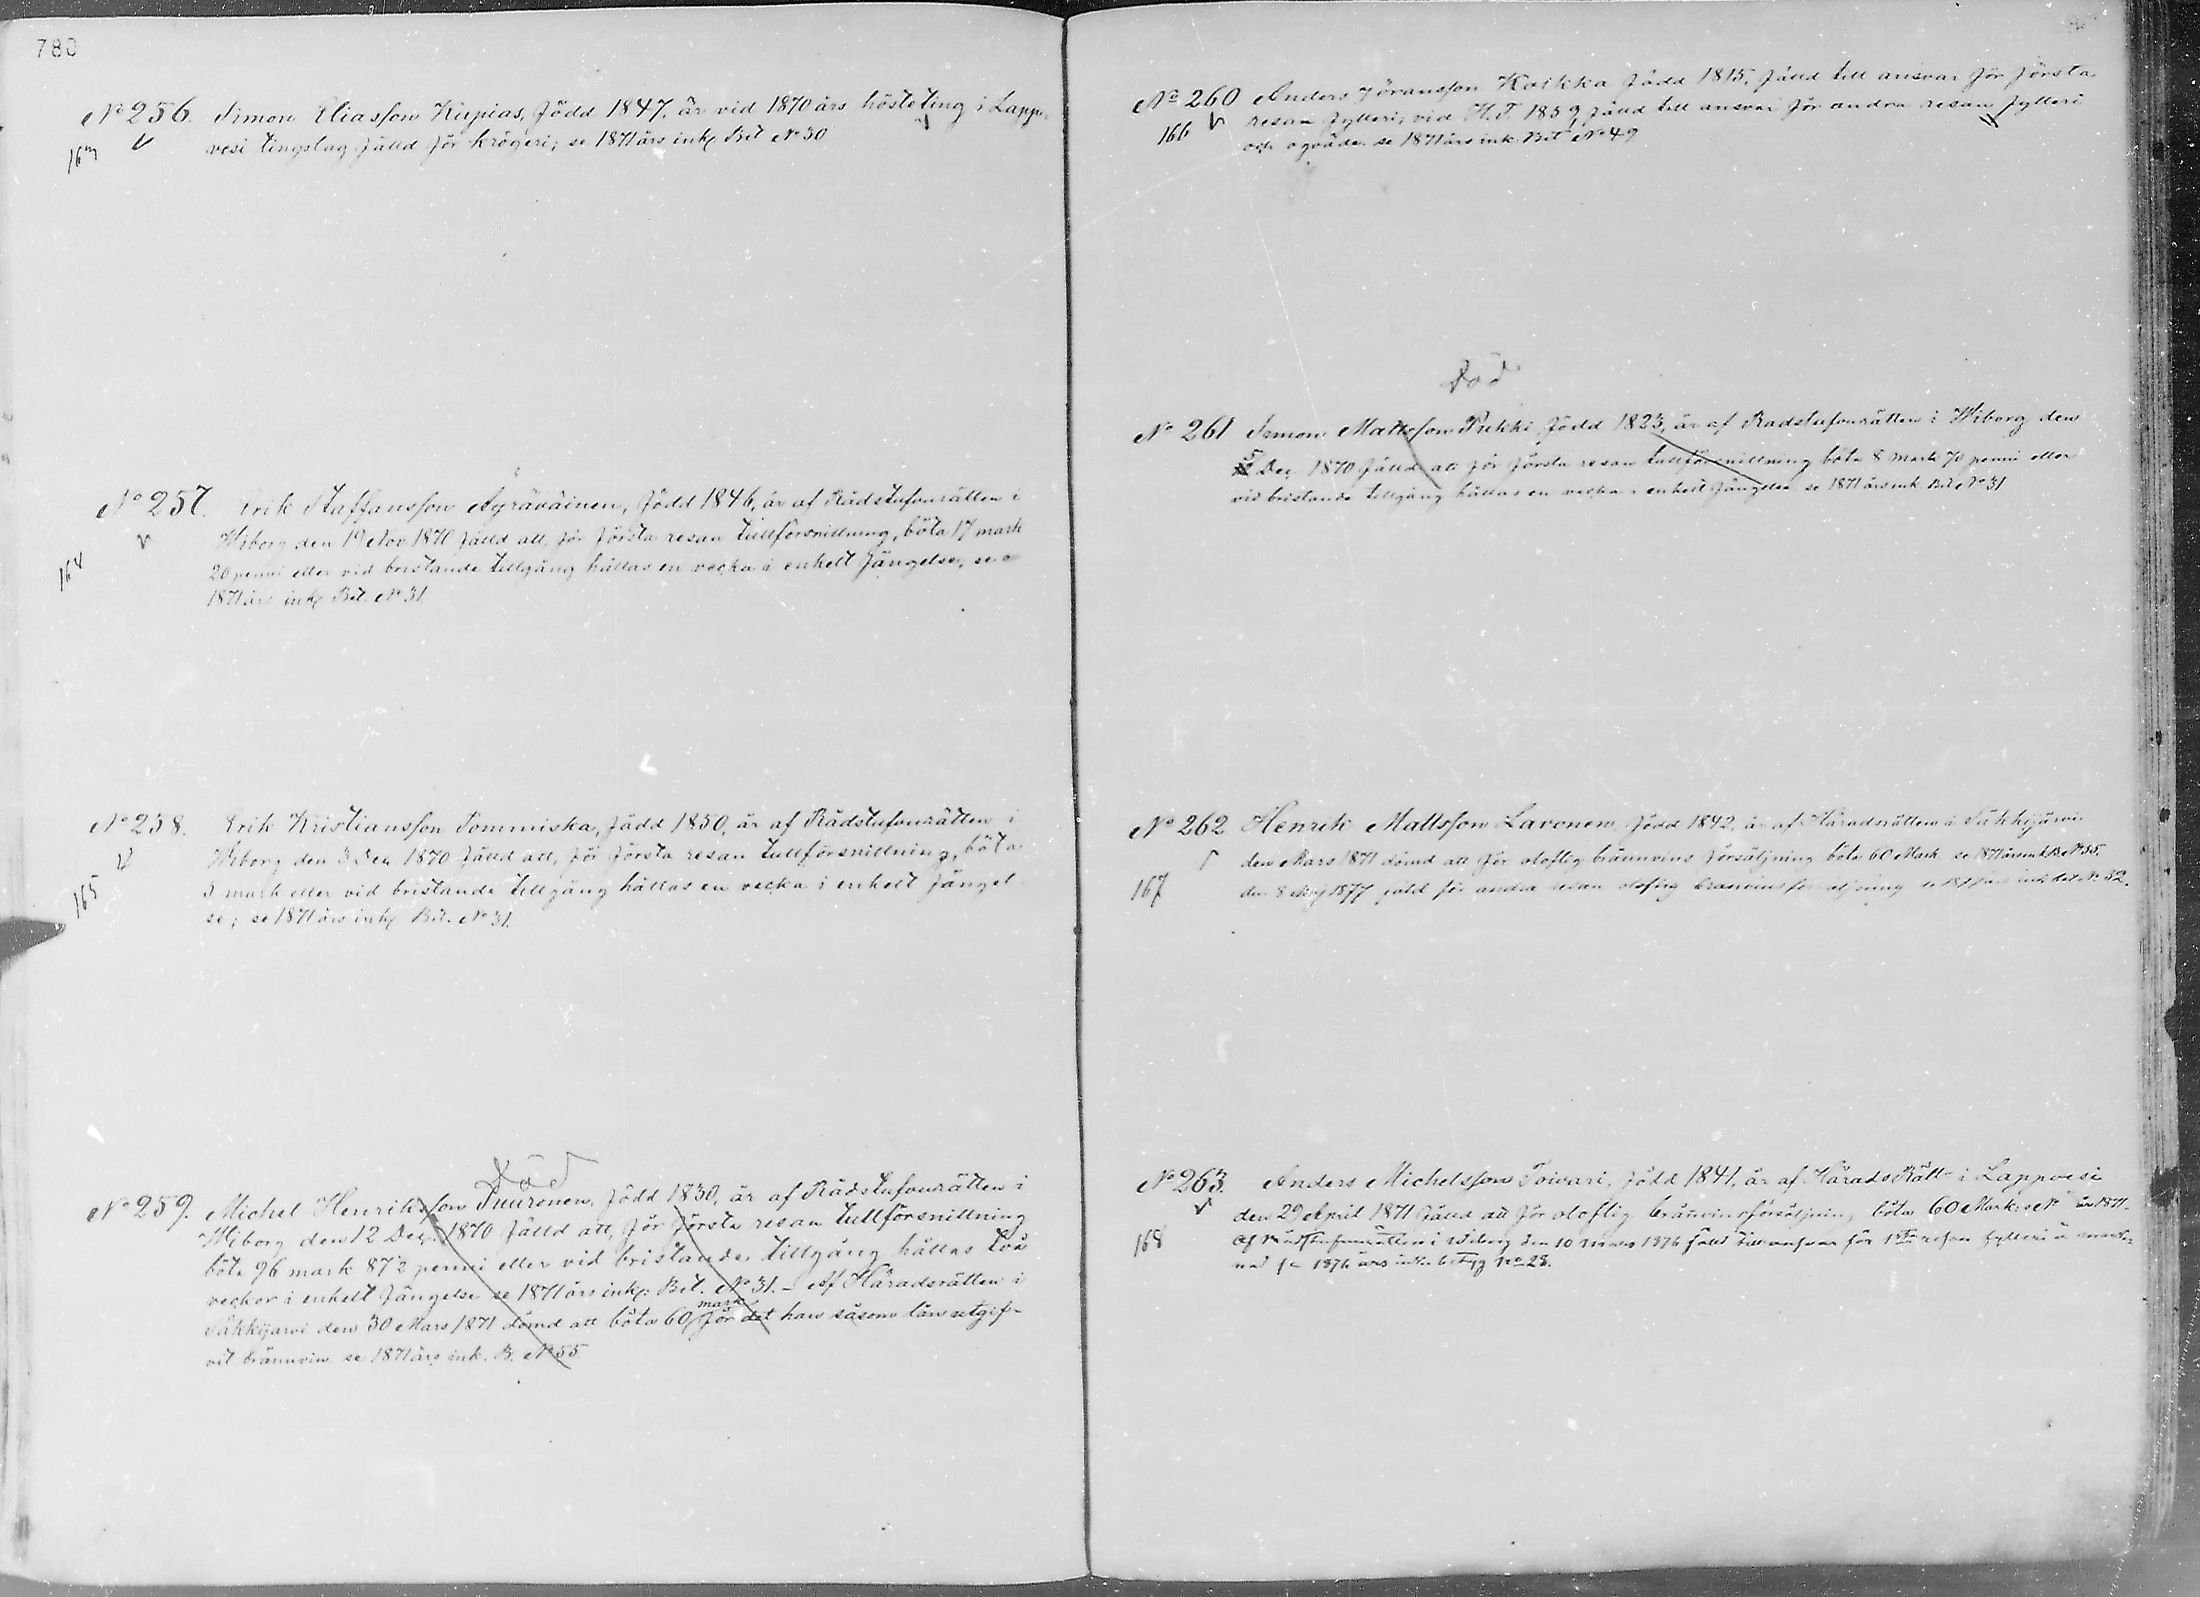 780
No 256. Simon Eliasson Kupias, född 1847, är vid 1870 års hösteting i Lappo-
vesi tingslag fälld för krögeri; se 1871 års ink. Bil No 30
No 257. Erik Staffansson Äyräväinen, född 1846, är af Rådstufourätten i
164
Wiborg den 19 Nov 1870 fälld att, för första resan tullförsnillning, böta 17 mark
20 penni eller vid bristande tillgång hållas en vecka i enkelt fängelse, se
1871 års ink. Bil. No 31.
No 258. Erik Kristiansson Tommiska, född 1850, är af Rådstufourätten i
Wiborg den 3 Dec 1870 fälld att, för första resan tullförsnillning, böta
165
5 mark eller vid bristande tillgång hållas en vecka i enkelt fängel-
se; se 1871 års ink. Bil. No 31.
Död
No 259. Michel Henriksson Tuuronen, född 1830, är af Rådstufourätten i
Wiborg den 12 Dec. 1870 fälld att, för första resan tullförsnillning
böta 96 mark 87½ penni eller vid bristande tillgång hållas två
veckor i enkelt fängelse se 1871 års ink. Bil. No 31. - Af Häradsrätten i
Säkkijärvi den 30 Mars 1871 dömd att böta 60 mark för det han såsom lån utgif-
vit brännvin se 1871 års ink. B. No 55.
No 260 Anders Jöransson Kaikka född 1815, fälld till ansvar för första
166
resan fylleri; vid H.T. 1859 fälld till ansvar för andra resan fylleri
och oqväde se 1871 års ink. Bil No 49
Död
No 261 Simon Mattsson Pukki född 1823, är af Rådstufourätten i Wiborg den
5 Dec. 1870 fälld att för första resan tullförsnillning böta 8 mark 70 penni eller
vid bristande tillgång hållas en vecka i enkelt fängelse se 1871 års ink. Bil. No 31
No 262 Henrik Mattsson Lavonen, född 1842, är af Häradsrätten i Säkkijärvi
den Mars 1871 dömd att för oloflig brännvins försäljning böta 60 Mark se 1871 års ink. B. No 55.
167
den 8 Maj 1877 fäld för andra resan oloflig bränvins försäljning se 1877 års ink. bil No 52.
No 263. Anders Michelsson Toivari, född 1841, är af HäradsRätt i Lappvesi
den 29 April 1871 fälld att för oloflig bränvinsförsäljning böta 60 Mark; se No år 1871.
168
Af Rådstufvurätten i Wiborg den 10 Mars 1876 fälld till ansvar för 1sta resan fylleri å mark-
nad se 1876 års ink. betyg No 28.